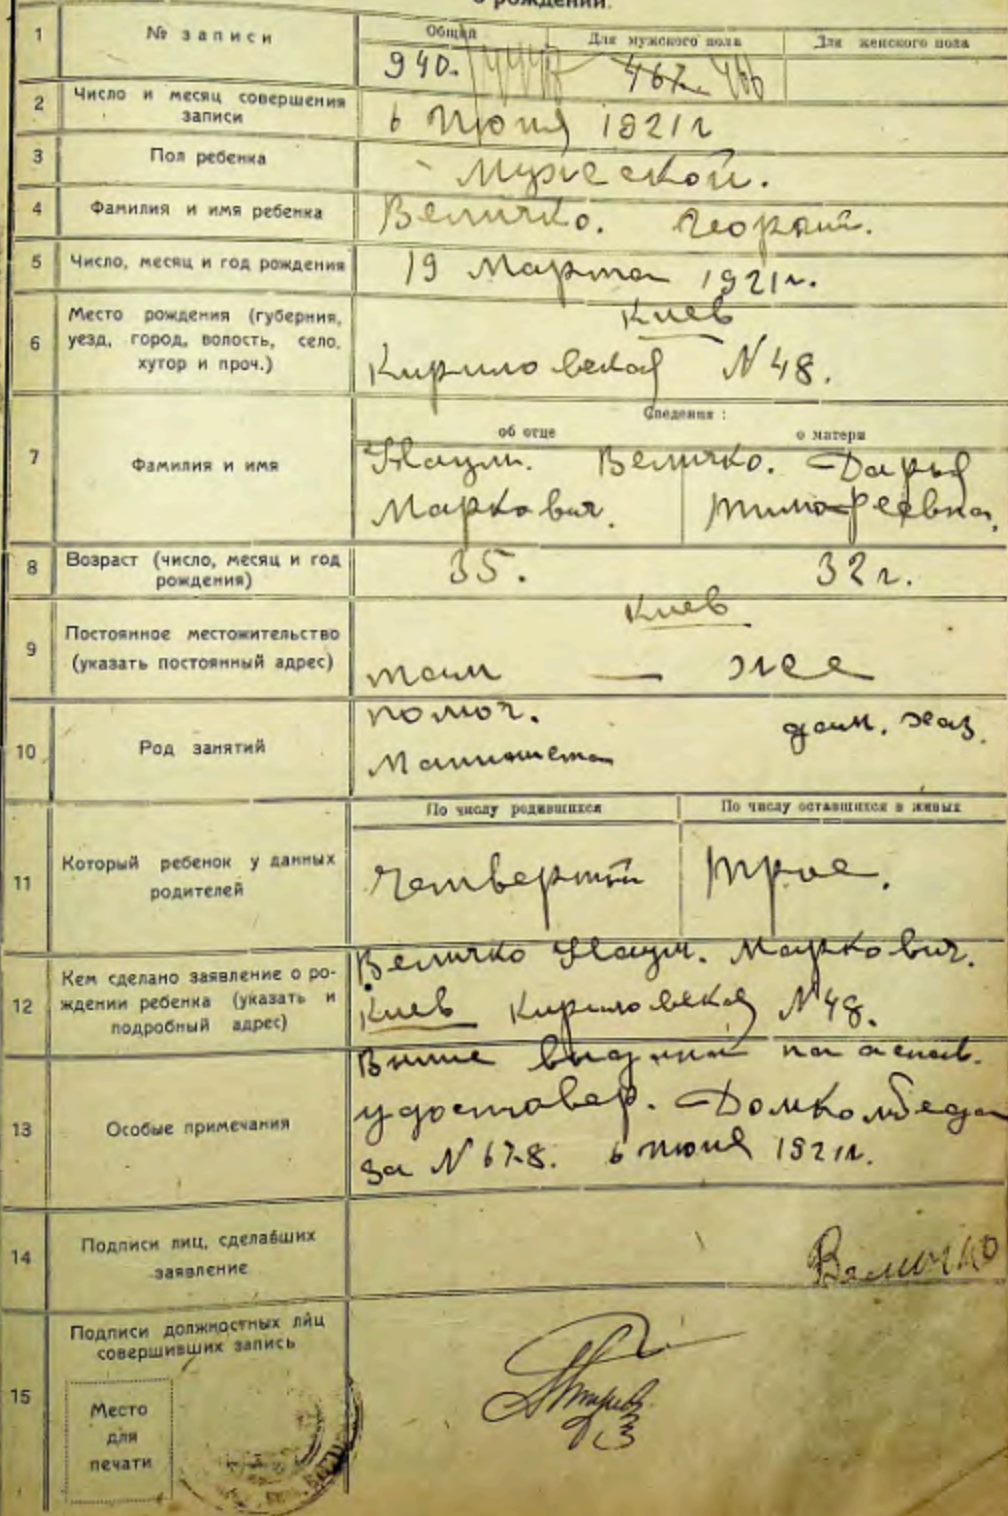 о рождении.
1 № записи Общий Для мужского пола Для женского пола
940. 467. 466
2 Число и месяц совершения
записи
6 Июня 1921 г
3 Пол ребенка Мужеской.
4 Фамилия и имя ребенка Величко. Георгий.
5 Число, месяц и год рождения 19 Марта 1921 г.
6 Место рождения (губерния,
уезд, город, волость, село,
хутор и проч.)
Киев
Кириловская N 48.
7 Фамилия и имя
Сведения:
об отце о матери
Наум. Величко. Дарья
Маркович. Тимофеевна.
8 Возраст (число, месяц и год
рождения)
35. 32 г.
9 Постоянное местожительство
(указать постоянный адрес)
Киев
там — же
10 Род занятий
помощ. дом. хаз.
Машиниста
11 Который ребенок у данных
родителей
По числу родившихся По числу оставшихся в живых
Четвертый Трое.
12 Кем сделано заявление о ро-
ждении ребенка (указать и
подробный адрес)
Величко Наум. Маркович.
Киев Кириловская N 48.
13 Особые примечания
удостовер. Домкомбеда
за N 678. 6 Июня 1921 г.
14 Подписи лиц, сделавших
заявление
Величко
15 Подписи должностных лиц
совершивших запись
Место
для
печати